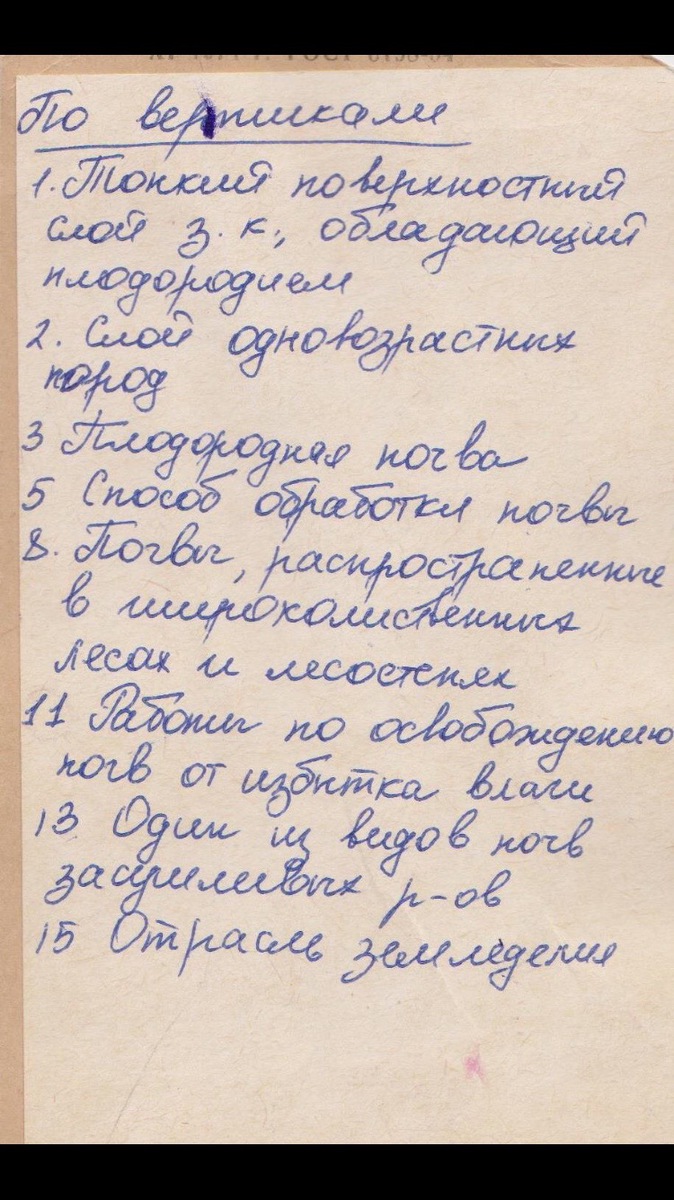 По вертикали
1. Тонкий поверхностный
слой з. к., обладающий
плодородием
2. Слой одновозрастных
пород
3 Плодородная почва
5 Способ обработки почвы
8. Почвы, распространенные
в широколиственных
лесах и лесостепях
11 Работы по освобождению
почв от избытка влаги
13 Один из видов почв
засушливых р-ов
15 Отрасль земледелия